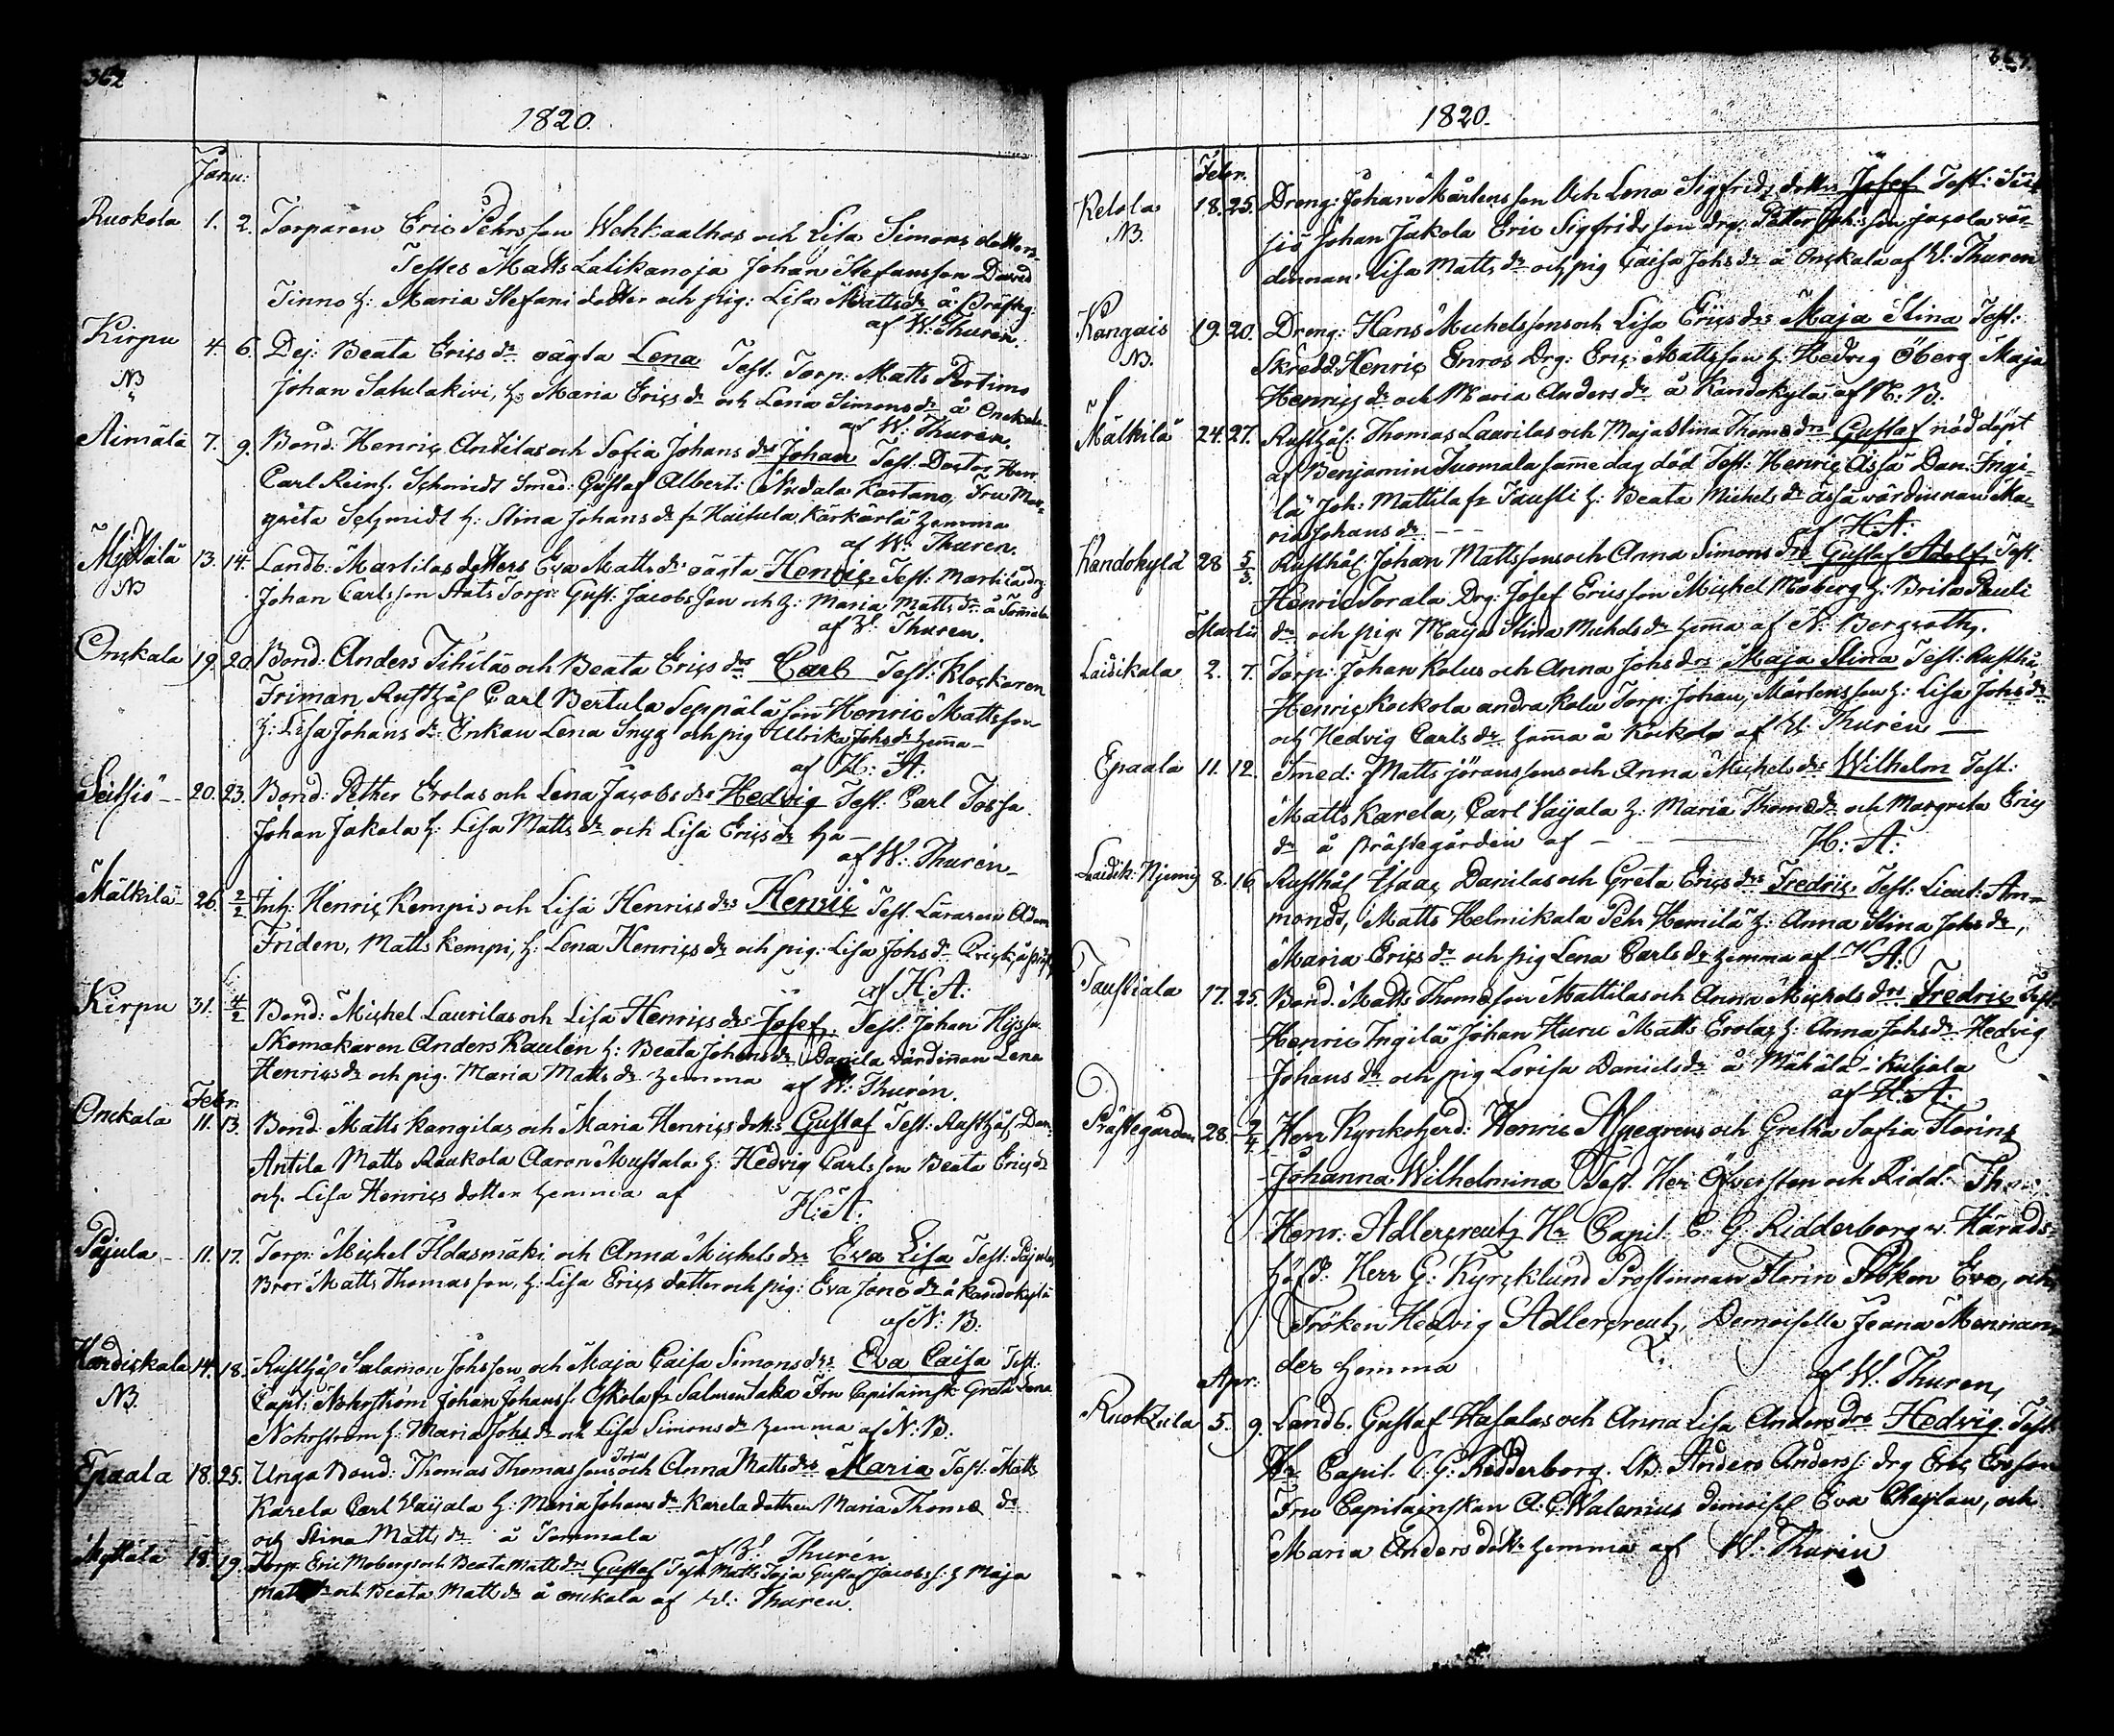 362
1820.
Janu:
Ruokola 1. 2. Torparen Eric Pehrsson Wehkaalhos och Lisa Simons dotters
Testes Matts Lalikanoja Johan Stefansson David
Tinno h: Maria Stefans dotter och pig: Lisa Mattsdr å Prästg:
af W: Thuren.
Kirpu 4. 6. Pej: Beata Ericsdr oägta Lena Test: Torp: Matts Portimo
NB Johan Satulakivi, h: Maria Ericsdr och Lena Simonsdr å Onckala
af W: Thurén.
Aimälä 7. 9. Bond: Henric Antilas och Sofia Johans drs Johan Test: Doctor Herr
Carl Reinh. Schmidt Smed: Gustaf Albert: Nudala Kartano, Fru Mar-
greta Schmidt h: Stina Johansdr fr Haitula Kärkärlä hemma
af W: Thuren.
Myttälä 13. 14. Landb: Martilas dotters Eva Mattsdrs oägta Henric Test: Martila drg
NB Johan Carlsson Aats Torp: Gust: Jacobsson och h: Maria Mattsdr å Tommala
af W: Thuren.
Onckala 19. 20. Bond: Anders Tihiläs och Beata Erics drs Carl Test: Klockaren
Friman Rusthål Carl Bertula Seppälä son Henric Mattsson
h: Lisa Johansdr Enkan Lena Snyg och pig Ulrika Johsdr hemma
af H: A:
Seitsiö 20. 23. Bond: Pether Erolas och Lena Jacobs drs Hedvig Test: Carl Tossa
Johan Jakala h: Lisa Mattsdr och Lisa Ericsdr ha
af W: Thurén
Mälkilä 26. 2/2 Inh: Henric Kempis och Lisa Henrics drs Henric Test. Läraren Adam
Friden, Matts Kempi, h: Lena Henricsdr och pig: Lisa Johsdr
af H. A:
Kirpu 31. 4/2 Bond: Michel Laurilas och Lisa Henrics drs Josef. Test: Johan Hyssa
Skomakaren Anders Raulen h: Beata Johansdr Danila värdinnan Lena
Henricsdr och pig. Maria Mattsdr hemma af W: Thurén.
Febr.
Onckala 11. 13. Bond: Matts Kangilas och Maria Henrics dotters Gustaf Test: Rusthål Dan.
Antila Matts Raukola Aaron Mustala h: Hedvig Carlsson Beata Ericsdr
och Lisa Henrics dotter hemma af H: A:
Pajula 11. 17. Torp: Michel Hdasmäki och Anna Michels drs Eva Lisa Test: Pajulas
Bror Matts Thomasson, h: Lisa Erics dotter och pig: Eva Jonædr å Kandokylä
af N: B:
Kardiskala 14. 18. Rusthål Salamon Johsson och Maja Caisa Simons drs Eva Caisa Test.
NB. Capt: Nohrström Johan Johanss: Eskola fr Salmentaka Fru Capitainsk: Greta Lena
Nohrstrom h: Maria Johsdr och Lisa Simonsdr hemma af N: B:
Epaala 18. 25. Unga Bond: Thomas Thomassons och Anna Matts drs Maria Test. Matts
Karela Carl Waijala h: Maria Johansdr Karela dottren Maria Thomædr
och Stina Mattsdr å Tommala af W: Thurén
Myttälä 18. 19. Torp: Eric Mobergs och Beata Matts drs Gustaf Test: Matts Soja Gustaf Jacobss: h Maja
Matts dr och Beata Mattsdr å onckala af W: Thuren.
1820.
Febr.
Retola 18. 25. Dreng: Johan Mårtensson Och Lena Sigfrids dotters Josef Test: Seit
NB. siö Johan Jakola Eric Sigfridsson drg: Petter Johsson Jacola vär-
dinnan Lisa Mattsdr och pig Caisa Johsdr å Onckala af W: Thuren
Kangais 19. 20. Dreng: Hans Michelssons och Lisa Erics drs Maja Stina Test:
NB. Skredd: Henric Enros Drg: Eric Mattsson h: Hedvig Öberg Maja
Henricsdr och Maria Andersdr å Kandokylä af N: B.
Mälkilä 24. 27. Rusthål: Thomas Laurilas och Maja Stina Thomædrs Gustaf nöd döpt
af Benjamin Tuomala samme dag död Test: Henric Ässä Dan. Ingi-
lä Joh: Mattila fr Tausti h: Beata Michelsdr ässä värdinnan Ma-
ria Johansdr af H A:
Kandokylä 28 5/3. Rusthål Johan Mattssons och Anna Simons drs Gustaf Adolf, Test.
Henric Torala Drg: Josef Ericsson Michel Moberg h: Brita Pauli
Martii dr och pig: Maija Stina Michelsdr hemma af N: Bergroth.
Laidikala 2. 7. Torp: Johan Kolus och Anna Johs drs Maja Stina Test: Rusthå,
Henric Kockola andra Kolu Torp: Johan, Mårtensson h: Lisa Johsdr
och Hedvig Carlsdr hemma å Kockola af W. Thurén
Epaala 11. 12. Smed: Matts Jöranssons och Anna Michels drs Wilhelm Test:
Matts Karela, Carl Vaijala h: Maria Thomædr och Margreta Erics
dr å Prästegården af H: A:
Laidik: Njemis 8. 16 Rusthål Isaac Danilas och Greta Erics drs Fredric. Test: Lieut: Am-
mondt, Matts Helmikala Pehr Hemilä h: Anna Stina Johsdr,
Maria Ericsdr och pig Lena Carlsdr hemma af H A:
Taustiala 17. 25. Bond. Matts Thomæson Mattilas och Anna Michels drs Fredric Test.
Henric Ingilä Johan Huru Matts Erolas h: Anna Johsdr Hedvig
Johansdr och pig Lovisa Danielsdr å Mähälä-Kuljala
af H: A:
Prästegården 28. 2/4 Herr Kyrkoherd: Henric Alnegrens och Gretha Sofia Florins
Johanna Wilhelmina Test. Her Öfversten och Ridd:
Henr: Adlercreutz Hr Capit. C. G. Ridderborg v. Härads-
höfd: Herr G: Kyrcklund Prostinnan Florin Fröken Eva, och
Fröken Hedvig Adlercreutz, Demoiselle Jeana Mennan-
der hemma af W. Thuren,
Apr:
Ruokzula 5. 9. Landb. Gustaf Hasalas och Anna Lisa Anders drs Hedvig. Test
Hr Capit. C. G: Ridderborg. Anders Anderss: drg Eric Ersson
Fru Capitainskan A: C. Walenius demoisel Eva Chaplau, och
Maria Anders dotter hemma af W. Thurén